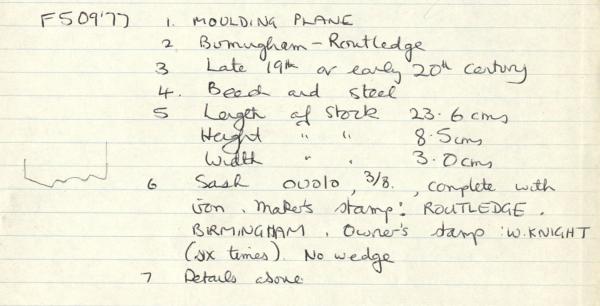 F509'77 1. MOULDING PLANE
2 Birmingham - Routledge
3 Late 19th or early 20th century
4. Beech and steel
5 Length of stock 23.6 cms
Height " " 8.5 cms
Width " " 3.0 cms
6 Sash ovolo, 3/8, complete with
iron. Maker's stamp: ROUTLEDGE.
BIRMINGHAM. Owner's stamp: W. KNIGHT
(six times). No wedge
7 Details above